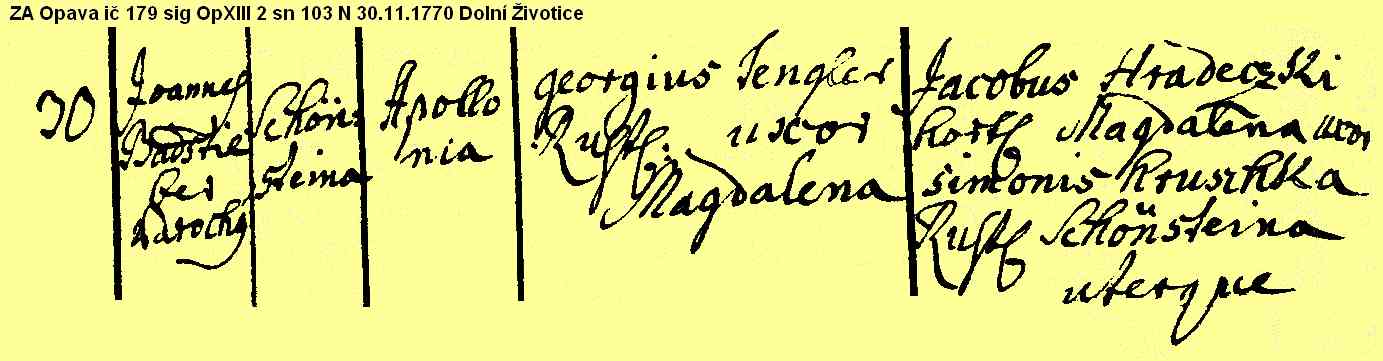 ZA Opava ič 179 sig OpXIII 2 sn 103 N 30.11.1770 Dolní Životice
30
Joannes
ber
Parochy
Schöns
steina
Apollo
nia
georgius Tengler
Rust. uxor
Magdalena
Jacobus Hradeczki
hort Magdalena uxor
simonis Kruszhka
Rust Schönsteina
uterque